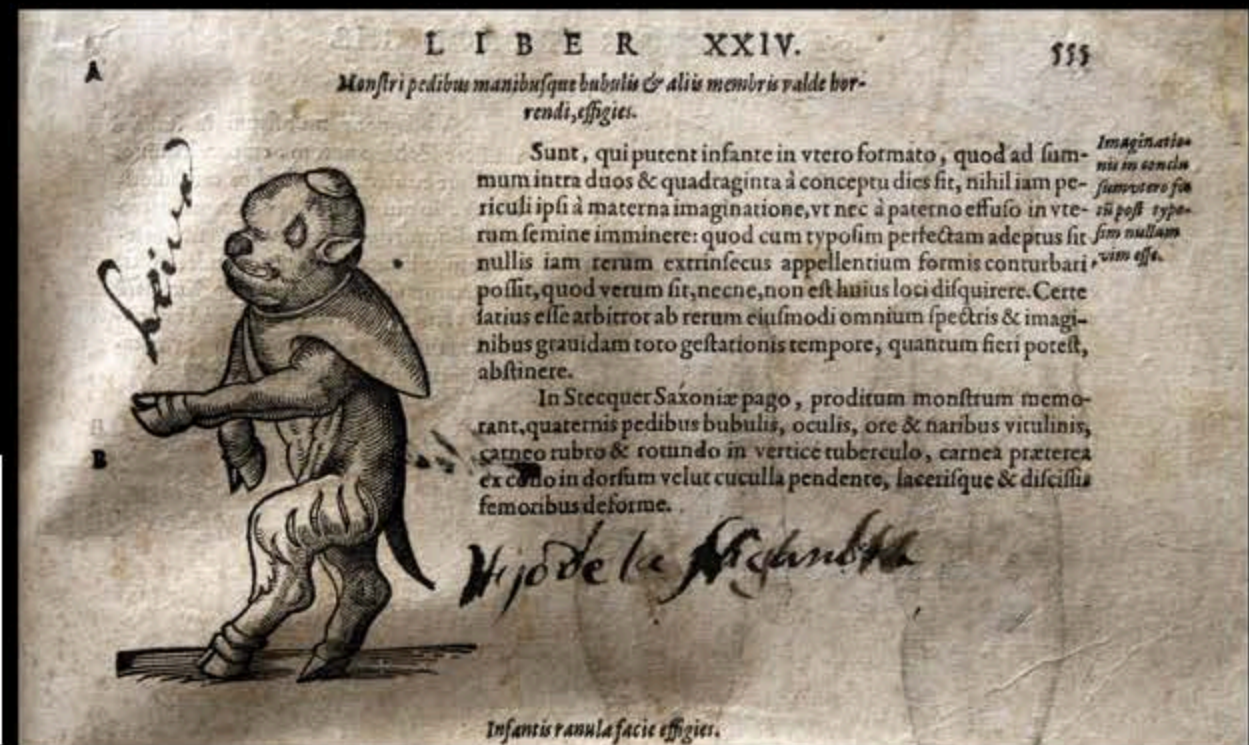 LIBER XXIV. 555
A
Monſtri pedibus manibuſque bubulis & aliis membris valde hor-
rendi, effigies.
Sunt, qui putent infante in vtero formato, quod ad ſum-
mum intra duos & quadraginta à conceptu dies fit, nihil iam pe-
riculi ipſi à materna imaginatione, vt nec à paterno effuſo in vte-
rum ſemine imminere: quod cum typoſim perfectam adeptus ſit
nullis iam rerum extrinſecus appellentium formis conturbari
poſſit, quod verum ſit, necne, non eſt huius loci diſquirere. Certe
ſatius eſſe arbitror ab rerum eiuſmodi omnium ſpectris & imagi-
nibus grauidam toto geſtationis tempore, quantum fieri poteſt,
abſtinere.
Imaginatio-
nis in conclu
ſum vtero fœ
tũ poſt typo-
ſim nullam
vim eſſe.
B
In Stecquer Saxoniæ pago, proditum monſtrum memo-
rant, quaternis pedibus bubulis, oculis, ore & naribus vitulinis,
carneo rubro & rotundo in vertice tuberculo, carnea præterea
ex collo in dorſum velut cuculla pendente, laceriſque & diſciſſis
femoribus deforme.
Hijo de la
Infantis ranulæ facie effigies.